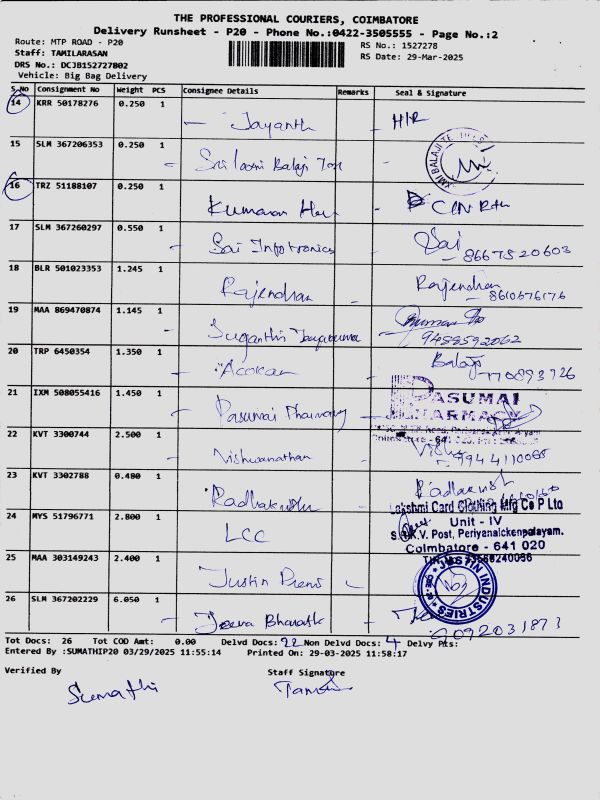 THE PROFESSIONAL COURIERS, COIMBATORE
Delivery Runsheet - P20 - Phone No.:0422-3505555 - Page No.:2
Route: MTP ROAD - P20 RS No.: 1527278
Staff: TAMILARASAN RS Date: 29-Mar-2025
DRS No.: DCJB152727802
Vehicle: Big Bag Delivery
S.No Consignment No Weight PCS Consignee Details Remarks Seal & Signature
14 KRR 50178276 0.250 1
Jayanth H/R
15 SLM 367206353 0.250 1
Sri laxmi Balaji Tex
16 TRZ 51188107 0.250 1
Kumaran
17 SLM 367260297 0.550 1
Sai Infotronics Sai 8667520603
18 BLR 501023353 1.245 1
Rajendhran Rajendhran 8610676176
19 MAA 869470874 1.145 1
Suganthi 9488592062
20 TRP 6450354 1.350 1 Balaji
21 IXM 508055416 1.450 1 PASUMAI
Pasumai Pharmacy PHARMACY
22 KVT 3300744 2.500 1
Vishwanathan 9944110068
23 KVT 3302788 0.480 1
Lakshmi Card Clothing Mfg Co P Ltd
24 MYS 51796771 2.800 1 Unit - IV
LCC S.R.K.V. Post, Periyanaickenpalayam.
Coimbatore - 641 020
25 MAA 303149243 2.400 1
Justin JUSTIN INDUSTRIES
26 SLM 367202229 6.050 1
Jeeva Bharath 9092031873
Tot Docs: 26 Tot COD Amt: 0.00 Delvd Docs: 22 Non Delvd Docs: 4 Delvy Pts:
Entered By :SUMATHIP20 03/29/2025 11:55:14 Printed On: 29-03-2025 11:58:17
Verified By Staff Signature
Sumathi